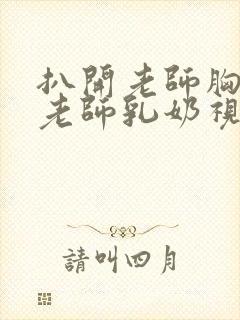 扒開老師胸
老師乳奶視
請叫四月